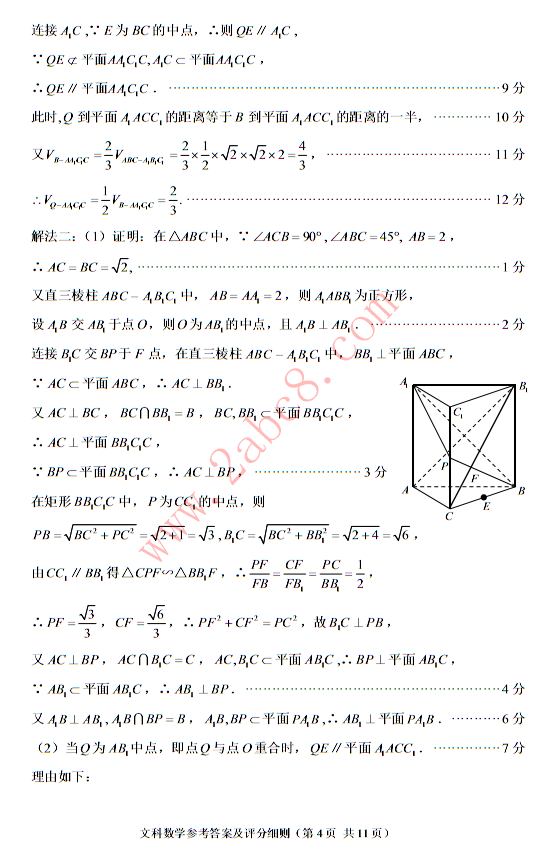 连接 A₁C ,∵ E 为 BC 的中点, ∴则 QE ∥ A₁C ,
∵ QE ⊄ 平面AA₁C₁C, A₁C ⊂ 平面AA₁C₁C ,
∴ QE ∥ 平面AA₁C₁C . ……………………………………………… 9 分
此时, Q 到平面 A₁ACC₁ 的距离等于 B 到平面 A₁ACC₁ 的距离的一半, ………… 10 分
又 V_{B−AA₁C₁C} = 2/3 V_{ABC−A₁B₁C₁} = 2/3 × 1/2 × √2 × √2 × 2 = 4/3 , ……………………… 11 分
∴ V_{Q−AA₁C₁C} = 1/2 V_{B−AA₁C₁C} = 2/3 . ……………………………………… 12 分
解法二:(1) 证明: 在 △ABC 中, ∵ ∠ACB = 90° , ∠ABC = 45°, AB = 2 ,
∴ AC = BC = √2, …………………………………………………… 1 分
又直三棱柱 ABC − A₁B₁C₁ 中, AB = AA₁ = 2 , 则 A₁ABB₁ 为正方形,
设 A₁B 交 AB₁ 于点 O , 则 O 为 AB₁ 的中点, 且 A₁B ⊥ AB₁ . ………………… 2 分
连接 B₁C 交 BP 于 F 点, 在直三棱柱 ABC − A₁B₁C₁ 中, BB₁ ⊥ 平面 ABC ,
∵ AC ⊂ 平面 ABC , ∴ AC ⊥ BB₁ .
又 AC ⊥ BC , BC ∩ BB₁ = B , BC, BB₁ ⊂ 平面 BB₁C₁C ,
∴ AC ⊥ 平面 BB₁C₁C ,
∵ BP ⊂ 平面 BB₁C₁C , ∴ AC ⊥ BP , ……………… 3 分
在矩形 BB₁C₁C 中, P 为 CC₁ 的中点, 则
PB = √(BC² + PC²) = √(2+1) = √3 , B₁C = √(BC² + BB₁²) = √(2+4) = √6 ,
由 CC₁ ∥ BB₁ 得 △CPF∽△BB₁F , ∴ PF/FB = CF/FB₁ = PC/BB₁ = 1/2 ,
∴ PF = √3/3 , CF = √6/3 , ∴ PF² + CF² = PC² , 故 B₁C ⊥ PB ,
又 AC ⊥ BP , AC ∩ B₁C = C , AC, B₁C ⊂ 平面 AB₁C ,∴ BP ⊥ 平面 AB₁C ,
∵ AB₁ ⊂ 平面 AB₁C , ∴ AB₁ ⊥ BP . …………………………………… 4 分
又 A₁B ⊥ AB₁ , A₁B ∩ BP = B , A₁B, BP ⊂ 平面 PA₁B ,∴ AB₁ ⊥ 平面 PA₁B . ………… 6 分
(2) 当 Q 为 AB₁ 中点, 即点 Q 与点 O 重合时, QE ∥ 平面 A₁ACC₁ . …………… 7 分
理由如下:
A₁
B₁
C₁
P
F
A
B
E
C
www.2abc8.com
文科数学参考答案及评分细则(第 4 页 共 11 页)